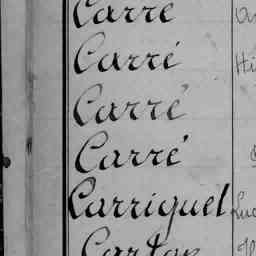 Carré
Carré
Carré
Carré
Carriquel